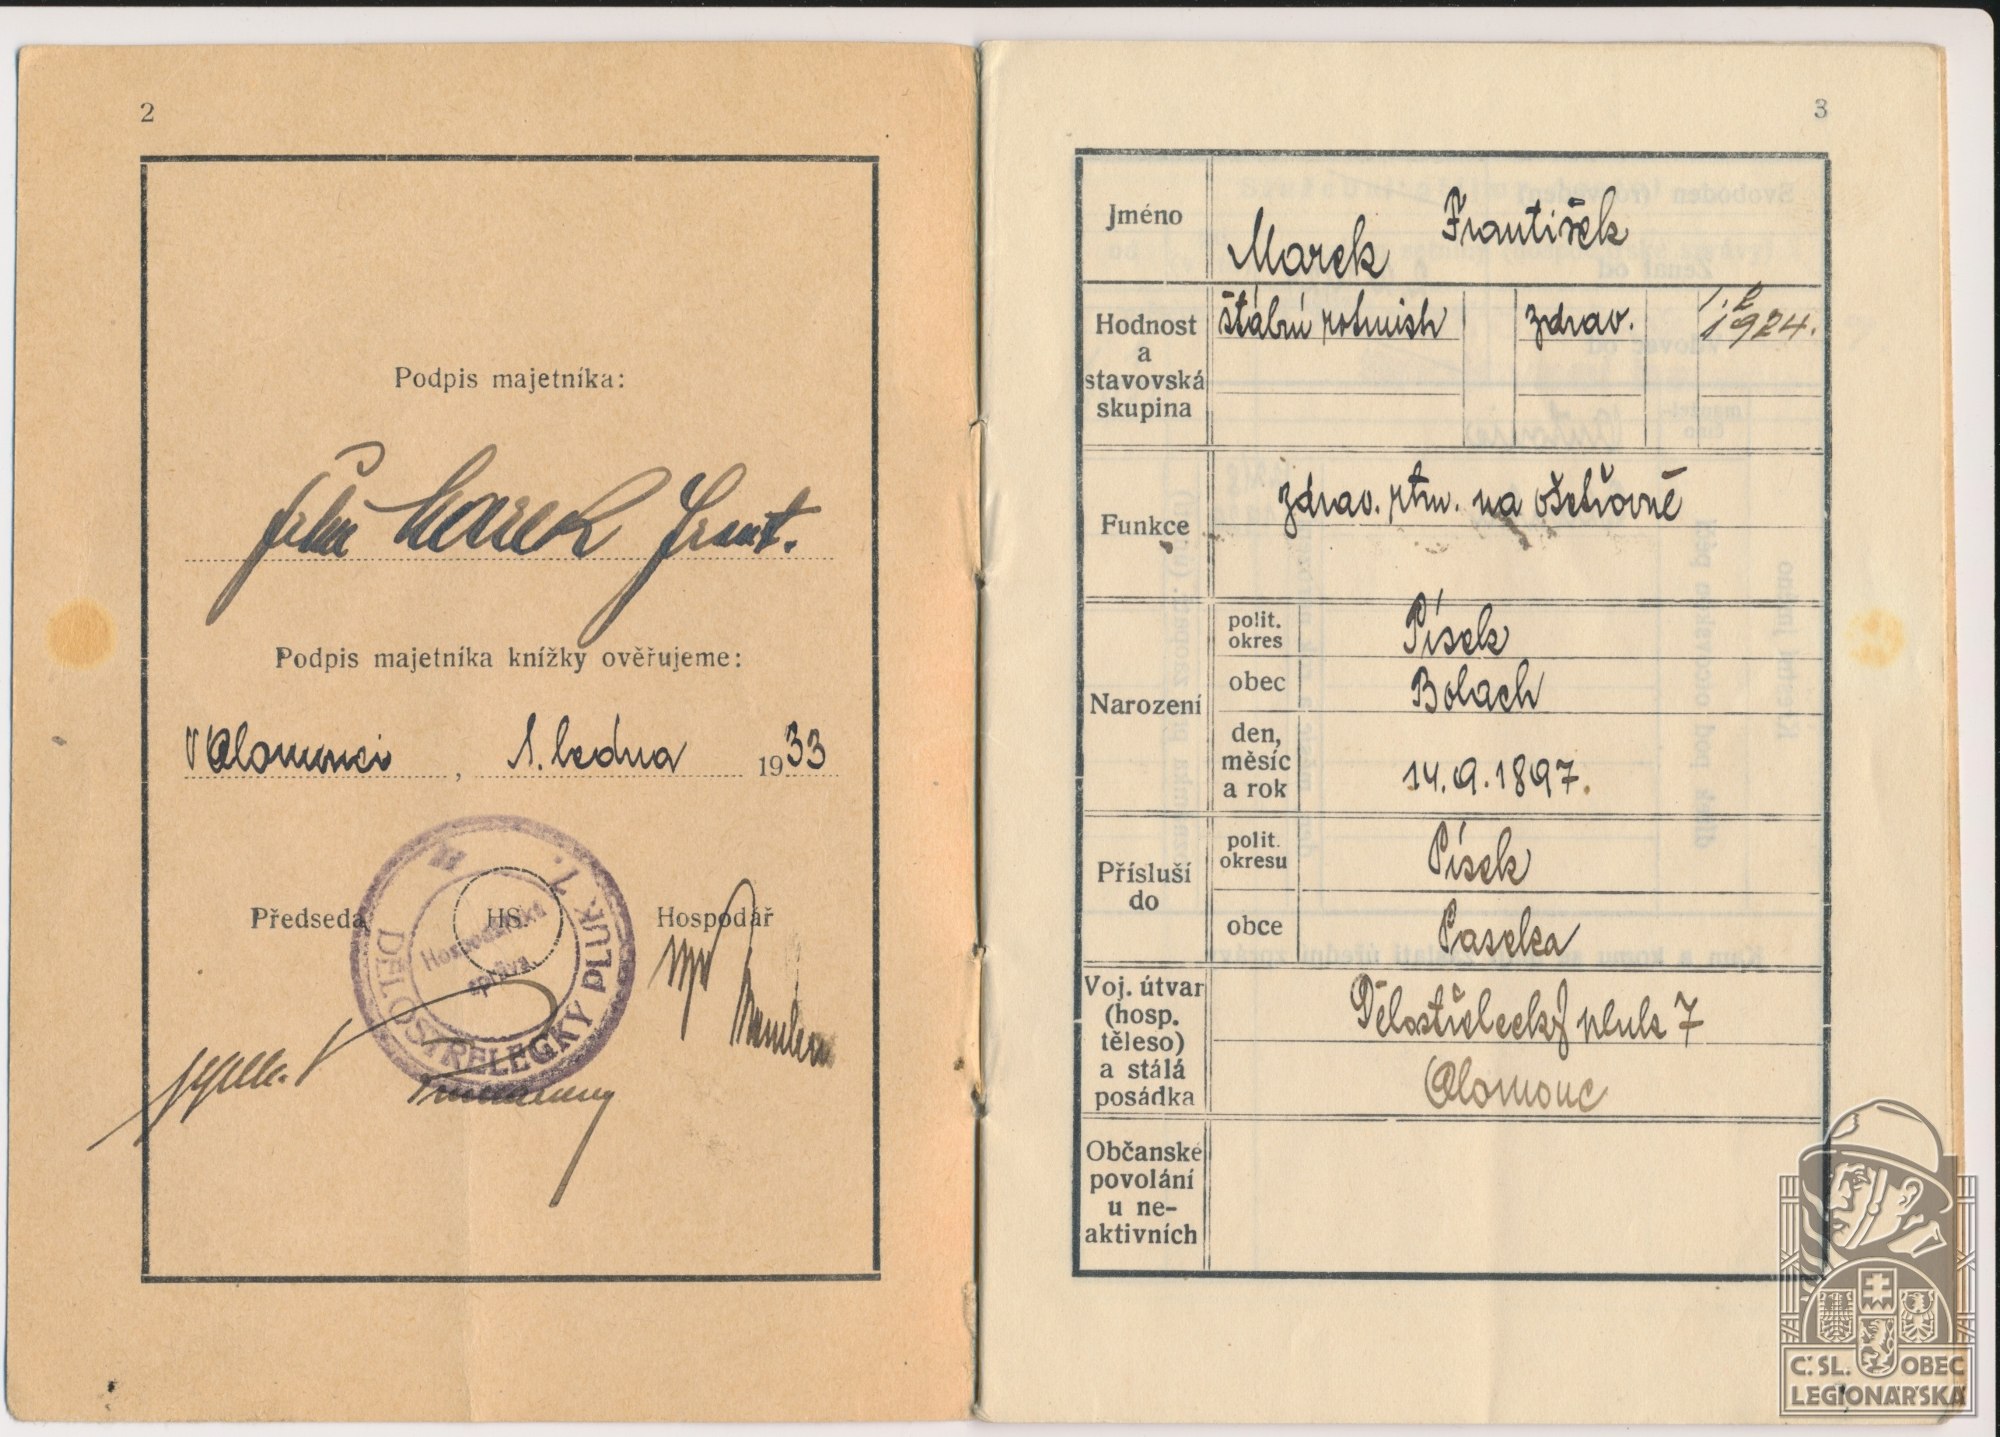 2
Podpis majetníka:
Marek Frant.
Podpis majetníka knížky ověřujeme:
V Olomouci, 1. ledna 1933
Předseda HS. Hospodář
DĚLOSTŘELECKÝ PLUK 7.
Hospodářská
správa
3
Jméno
Marek František
Hodnost
a
stavovská
skupina
štábní rotmistr zdrav. 1924.
Funkce
zdrav. rtm. na ošetřovně
Narození
polit.
okres
Písek
obec
Bolach
den,
měsíc
a rok
14. 9. 1897.
Přísluší
do
polit.
okresu
Písek
obce
Paseka
Voj. útvar
(hosp.
těleso)
a stálá
posádka
Dělostřelecký pluk 7
Olomouc
Občanské
povolání
u ne-
aktivních
Č. SL. OBEC
LEGIONÁŘSKÁ